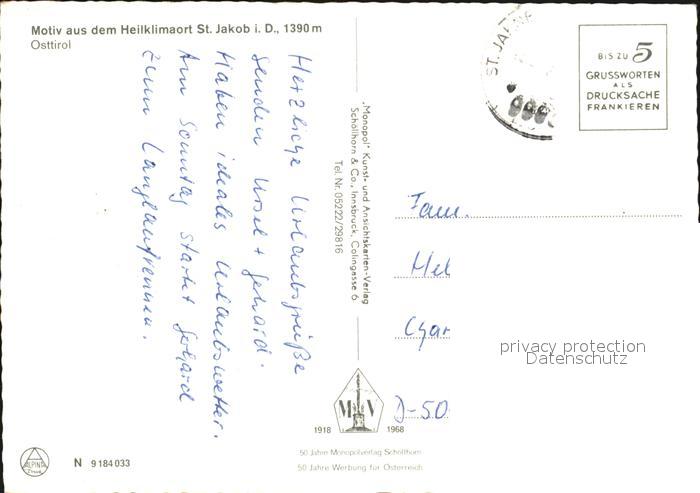 Motiv aus dem Heilklimaort St. Jakob i. D., 1390 m
Osttirol
Herzliche Urlaubsgrüße
senden Ursel + Gerhard.
Haben ideales Urlaubswetter.
Am Sonntag startet Gerhard
zum Langlaufrennen.
„Monopol" Kunst- und Ansichtskarten-Verlag
Schöllhorn & Co., Innsbruck, Colingasse 6
Tel. Nr. 05222/29816
ST. JA
BIS ZU 5
GRUSSWORTEN
ALS
DRUCKSACHE
FRANKIEREN
Fam.
Mel
D-50
privacy protection
Datenschutz
M V
1918 1968
50 Jahre Monopolverlag Schöllhorn
50 Jahre Werbung für Österreich
ALPINA
Druck
N 9 184 033